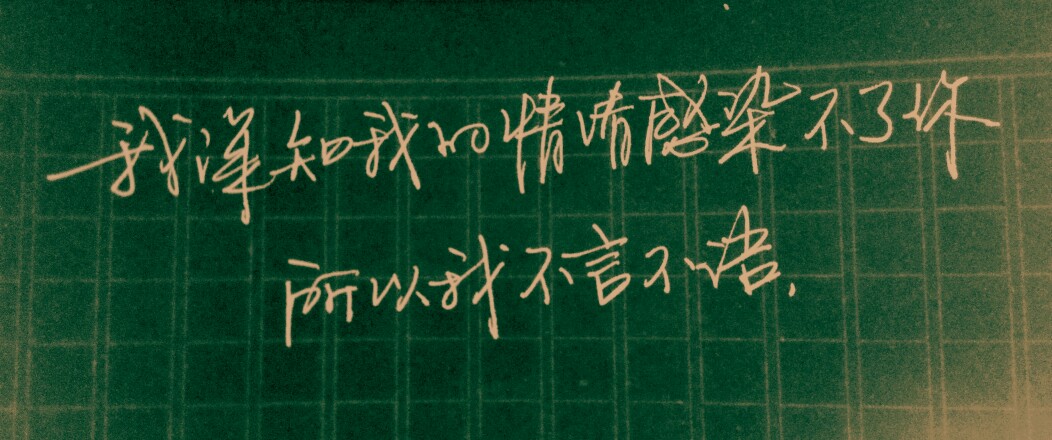 我深知我的情情感染不了你
所以我不言不语.